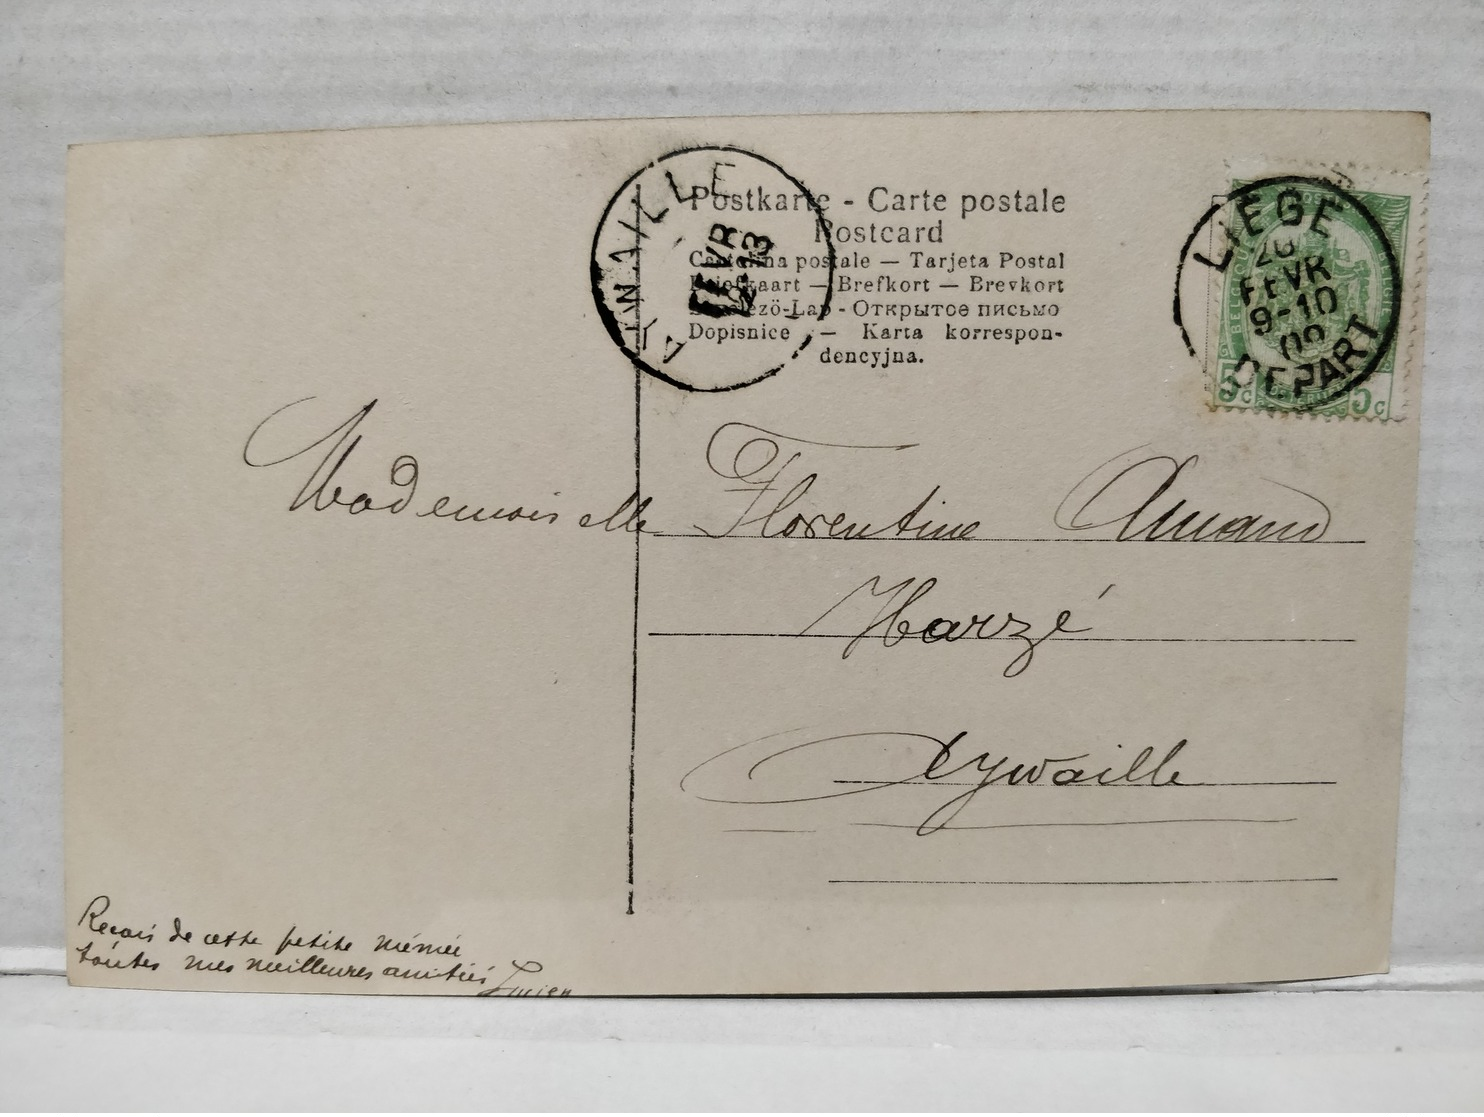 Postkarte - Carte postale
Postcard
Cartolina postale — Tarjeta Postal
Briefkaart — Brefkort — Brevkort
Levelező-Lap - Открытое письмо
Dopisnice — Karta korrespon-
dencyjna.
AYWAILLE
FEVR
12-13
LIÉGE
20
FEVR
9-10
09
DEPART
5 C 5 C
Mademoiselle Florentine Amand
Harzé
Aywaille
Recois de cette petite mémée
toutes mes meilleures amitiés
Lucien